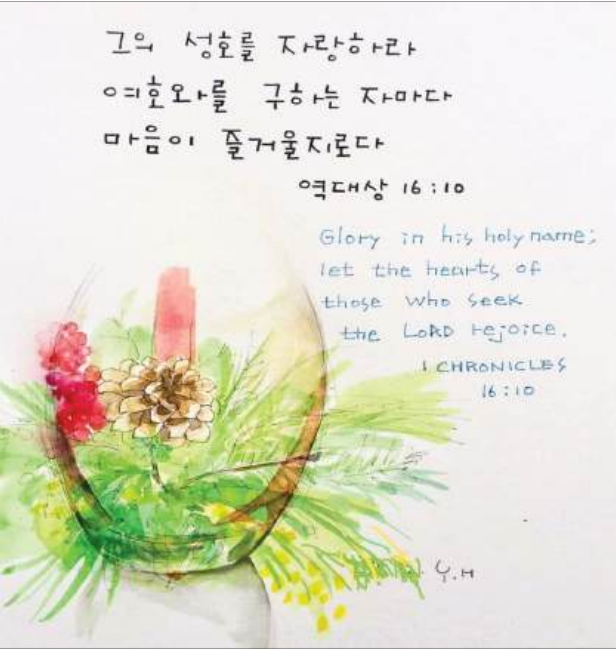 그의 성호를 자랑하라
여호와를 구하는 자마다
마음이 즐거울지로다
역대상 16:10
Glory in his holy name;
let the hearts of
those who seek
the LORD rejoice.
1 CHRONICLES
16:10
Y.H